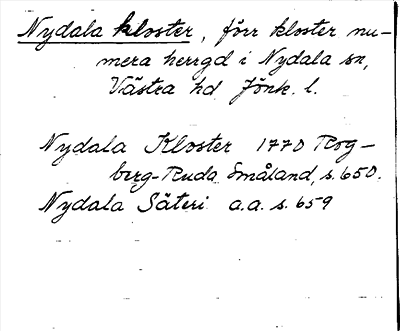 Nydala kloster, förr kloster nu-
mera herrgd i Nydala sn,
Västra hd Jönk. l.
Nydala Kloster 1770 Rog-
berg-Ruda Småland, s. 650.
Nydala Säteri a.a. s. 659